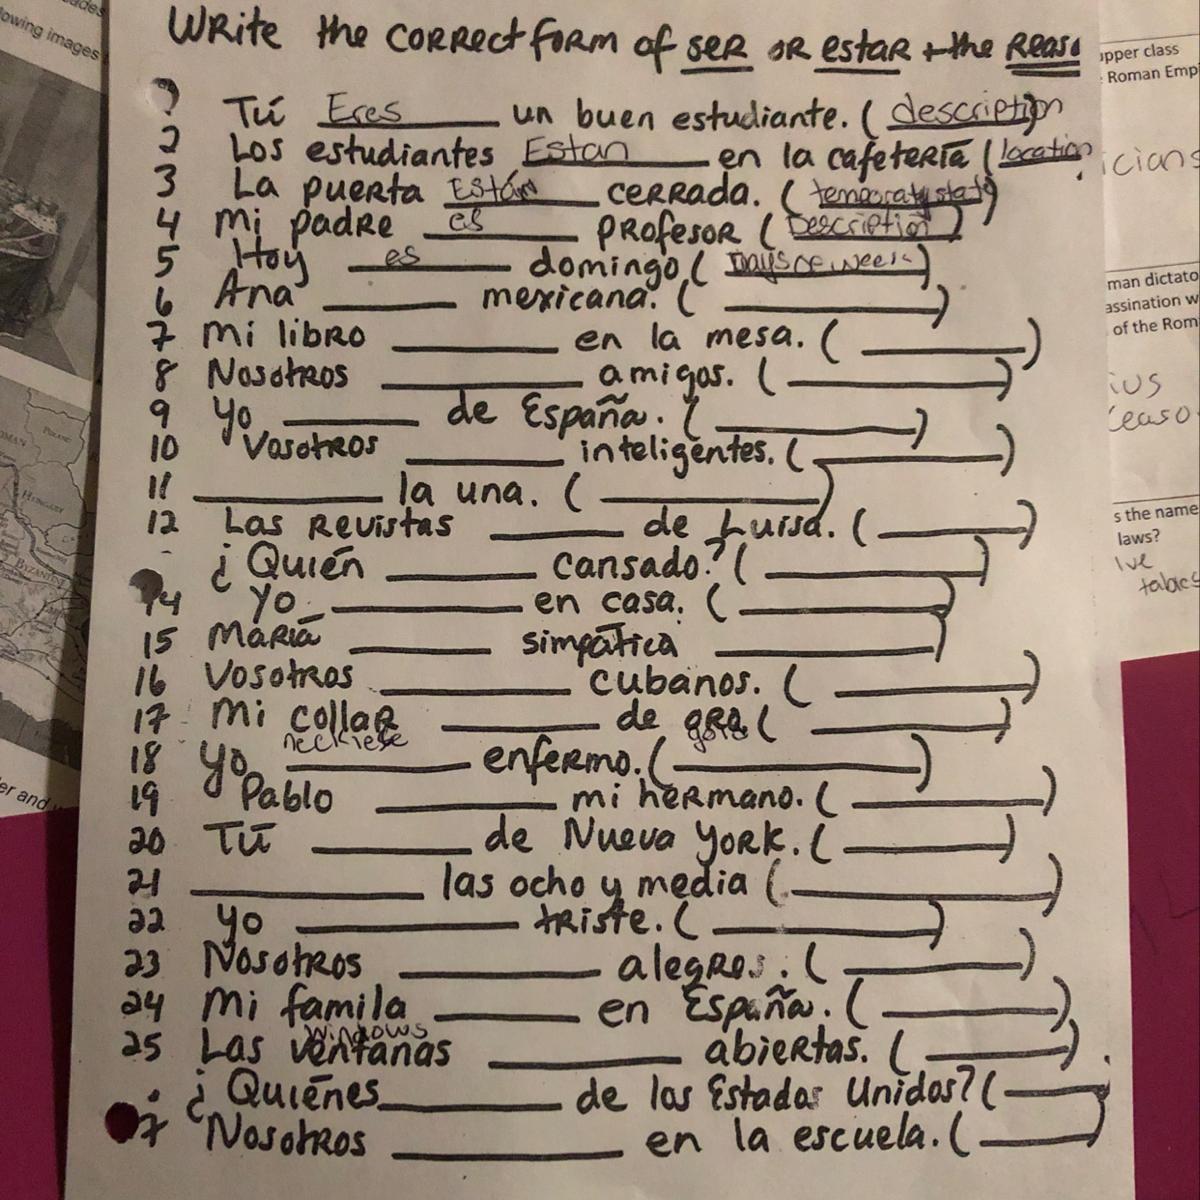 owing images
Write the correct form of ser or estar + the Reaso
1 Tú Eres un buen estudiante. (description)
2 Los estudiantes Estan en la cafetería (location)
3 La puerta Están cerrada. (temporary state)
4 Mi padre es profesor (Description)
5 Hoy es domingo (Days of week)
6 Ana ______ mexicana. (______)
7 Mi libro ______ en la mesa. (______)
8 Nosotros ______ amigos. (______)
9 Yo ______ de España. (______)
10 Vosotros ______ inteligentes. (______)
11 ______ la una. (______)
12 Las Revistas ______ de Luisa. (______)
¿Quién ______ cansado? (______)
14 Yo ______ en casa. (______)
15 María ______ simpática ______)
16 Vosotros ______ cubanos. (______)
17 Mi collar ______ de oro (______)
necklese gold
18 Yo ______ enfermo. (______)
19 Pablo ______ mi hermano. (______)
20 Tú ______ de Nueva York. (______)
21 ______ las ocho y media (______)
22 Yo ______ triste. (______)
23 Nosotros ______ alegres. (______)
24 Mi famila ______ en España. (______)
windows
25 Las ventanas ______ abiertas. (______)
¿Quiénes ______ de los Estados Unidos? (______)
7 Nosotros ______ en la escuela. (______)
upper class
Roman Emp
icians
man dictato
assination w
of the Rom
ius
ceaso
s the name
laws?
lve
tables
HUNGARY
BYZANTINE
er and